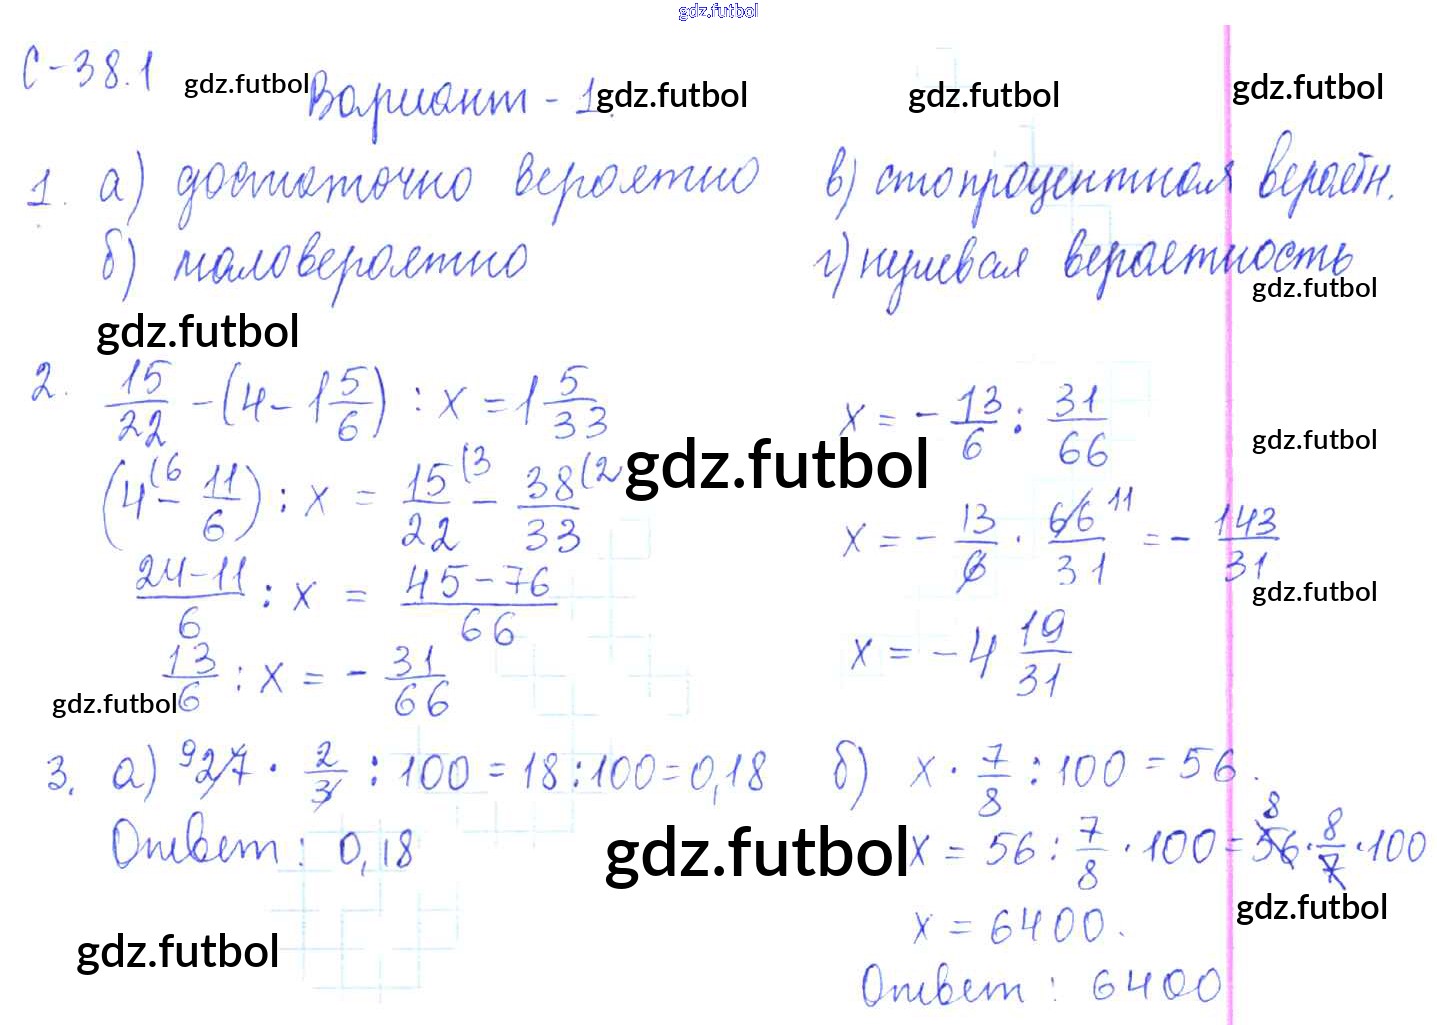 gdz.futbol
С-38.1
gdz.futbol Вариант - 1. gdz.futbol gdz.futbol gdz.futbol
1. а) достаточно вероятно в) стопроцентная вероятн.
б) маловероятно г) нулевая вероятность
gdz.futbol
gdz.futbol
2. 15/22 - (4 - 1 5/6) : x = 1 5/33
(4(6 - 11/6) : x = 15(3/22 - 38(2/33
gdz.futbol
(24-11)/6 : x = (45-76)/66
13/6 : x = - 31/66
gdz.futbol
x = - 13/6 : 31/66
gdz.futbol
x = - 13/6 · 66 11/31 = - 143/31
gdz.futbol
x = -4 19/31
3. а) 9 27 · 2/3 : 100 = 18 : 100 = 0,18
Ответ : 0,18
gdz.futbol
gdz.futbol
б) x · 7/8 : 100 = 56.
x = 56 : 7/8 · 100 = 56 8 · 8/7 · 100
gdz.futbol
x = 6400.
Ответ : 6400